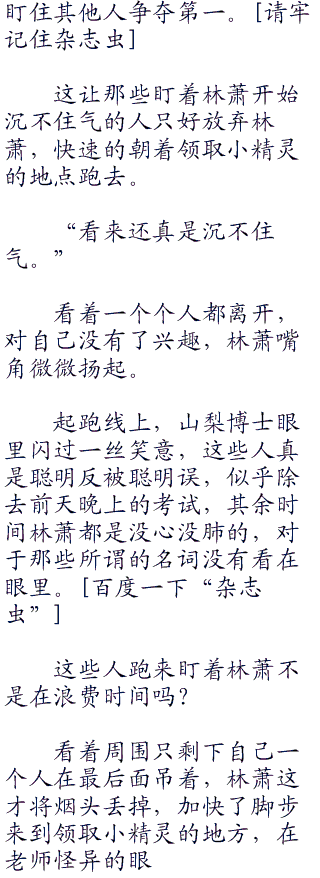 盯住其他人争夺第一。[请牢
记住杂志虫]
这让那些盯着林萧开始
沉不住气的人只好放弃林
萧，快速的朝着领取小精灵
的地点跑去。
“看来还真是沉不住
气。”
看着一个个人都离开，
对自己没有了兴趣，林萧嘴
角微微扬起。
起跑线上，山梨博士眼
里闪过一丝笑意，这些人真
是聪明反被聪明误，似乎除
去前天晚上的考试，其余时
间林萧都是没心没肺的，对
于那些所谓的名词没有看在
眼里。[百度一下“杂志
虫”]
这些人跑来盯着林萧不
是在浪费时间吗？
看着周围只剩下自己一
个人在最后面吊着，林萧这
才将烟头丢掉，加快了脚步
来到领取小精灵的地方，在
老师怪异的眼